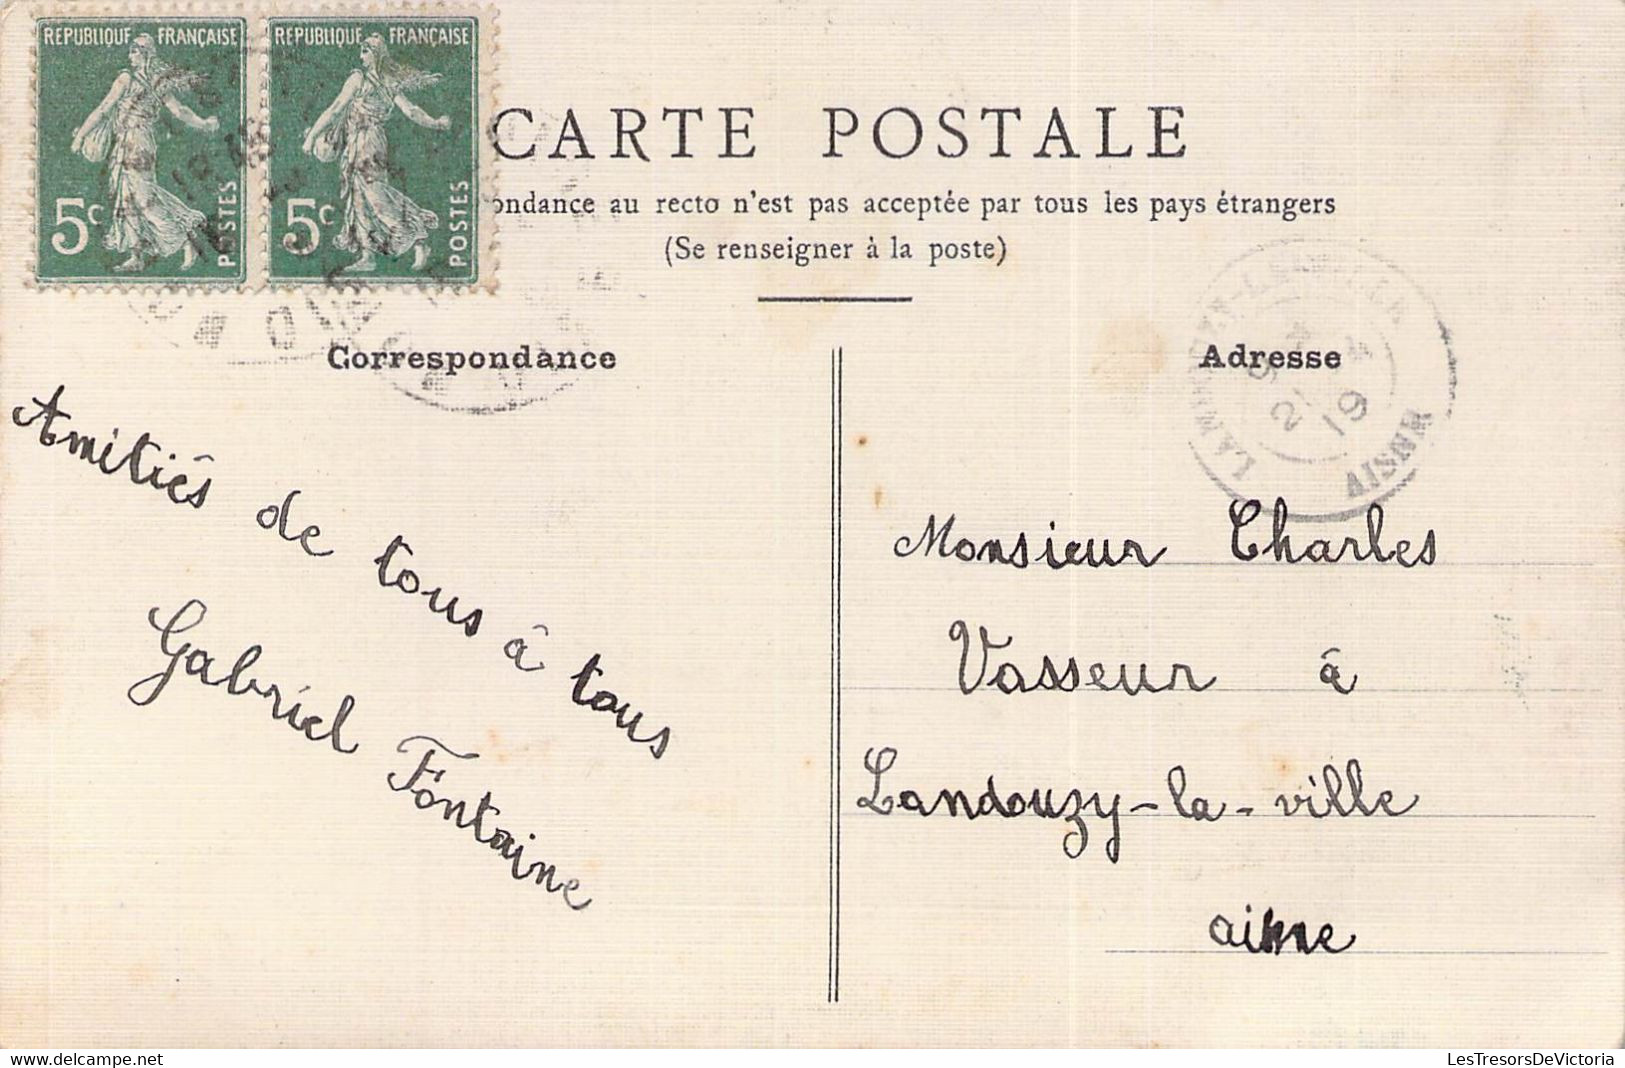 REPUBLIQUE FRANÇAISE
5c
POSTES
REPUBLIQUE FRANÇAISE
5c
POSTES
CARTE POSTALE
ondance au recto n'est pas acceptée par tous les pays étrangers
(Se renseigner à la poste)
Correspondance
Amitiés de tous à tous
Gabriel Fontaine
Adresse
21
19
AISNE
Monsieur Charles
Vasseur à
Landouzy-la-ville
aisne
LesTresorsDeVictoria